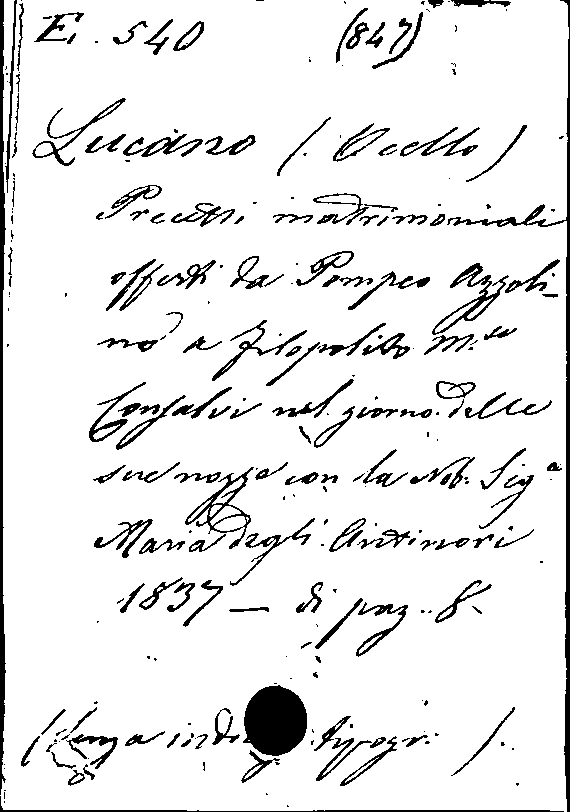 E. 540 (847)
Lucano (. Ocello)
Precetti matrimoniali
offerti da Pompeo Azzoli_
no a Filopolito M.se
Consalvi nel giorno delle
sue nozze con la Nob. Sig.a
Maria degli Antinori
1837 — di pag. 8.
(Senza tipogr. ).